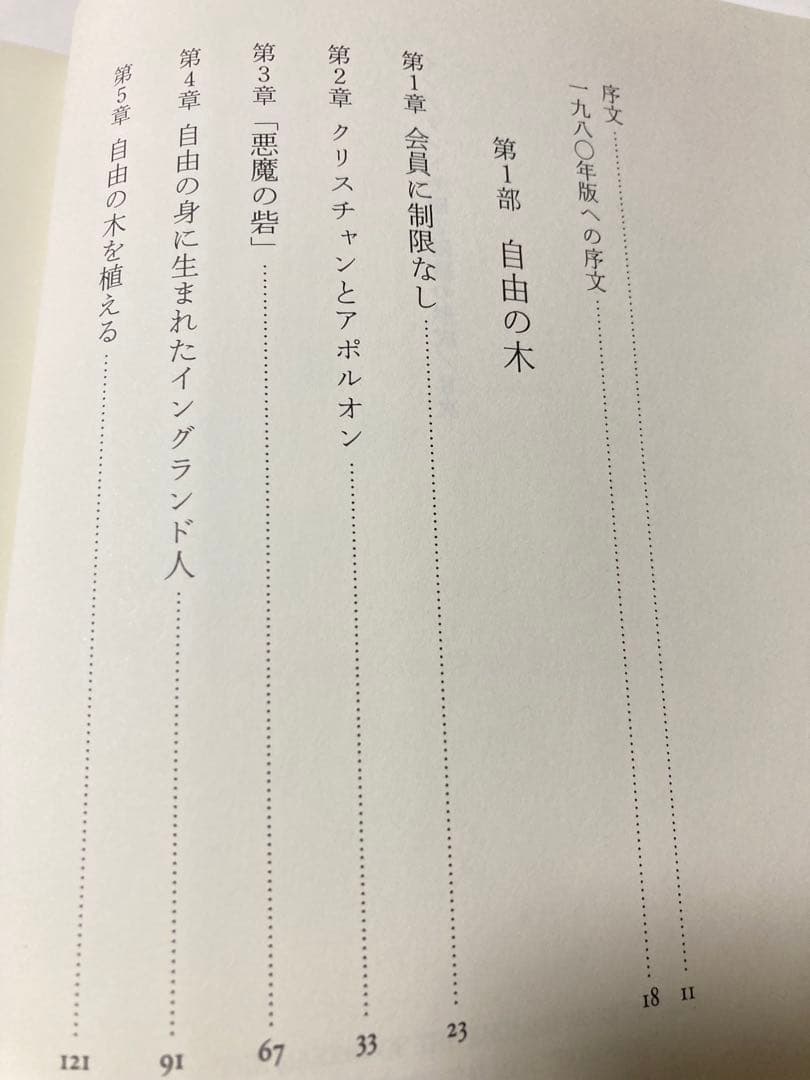 序文 11
一九八〇年版への序文 18
第1部 自由の木
第1章 会員に制限なし 23
第2章 クリスチャンとアポルオン 33
第3章 「悪魔の砦」 67
第4章 自由の身に生まれたイングランド人 91
第5章 自由の木を植える 121